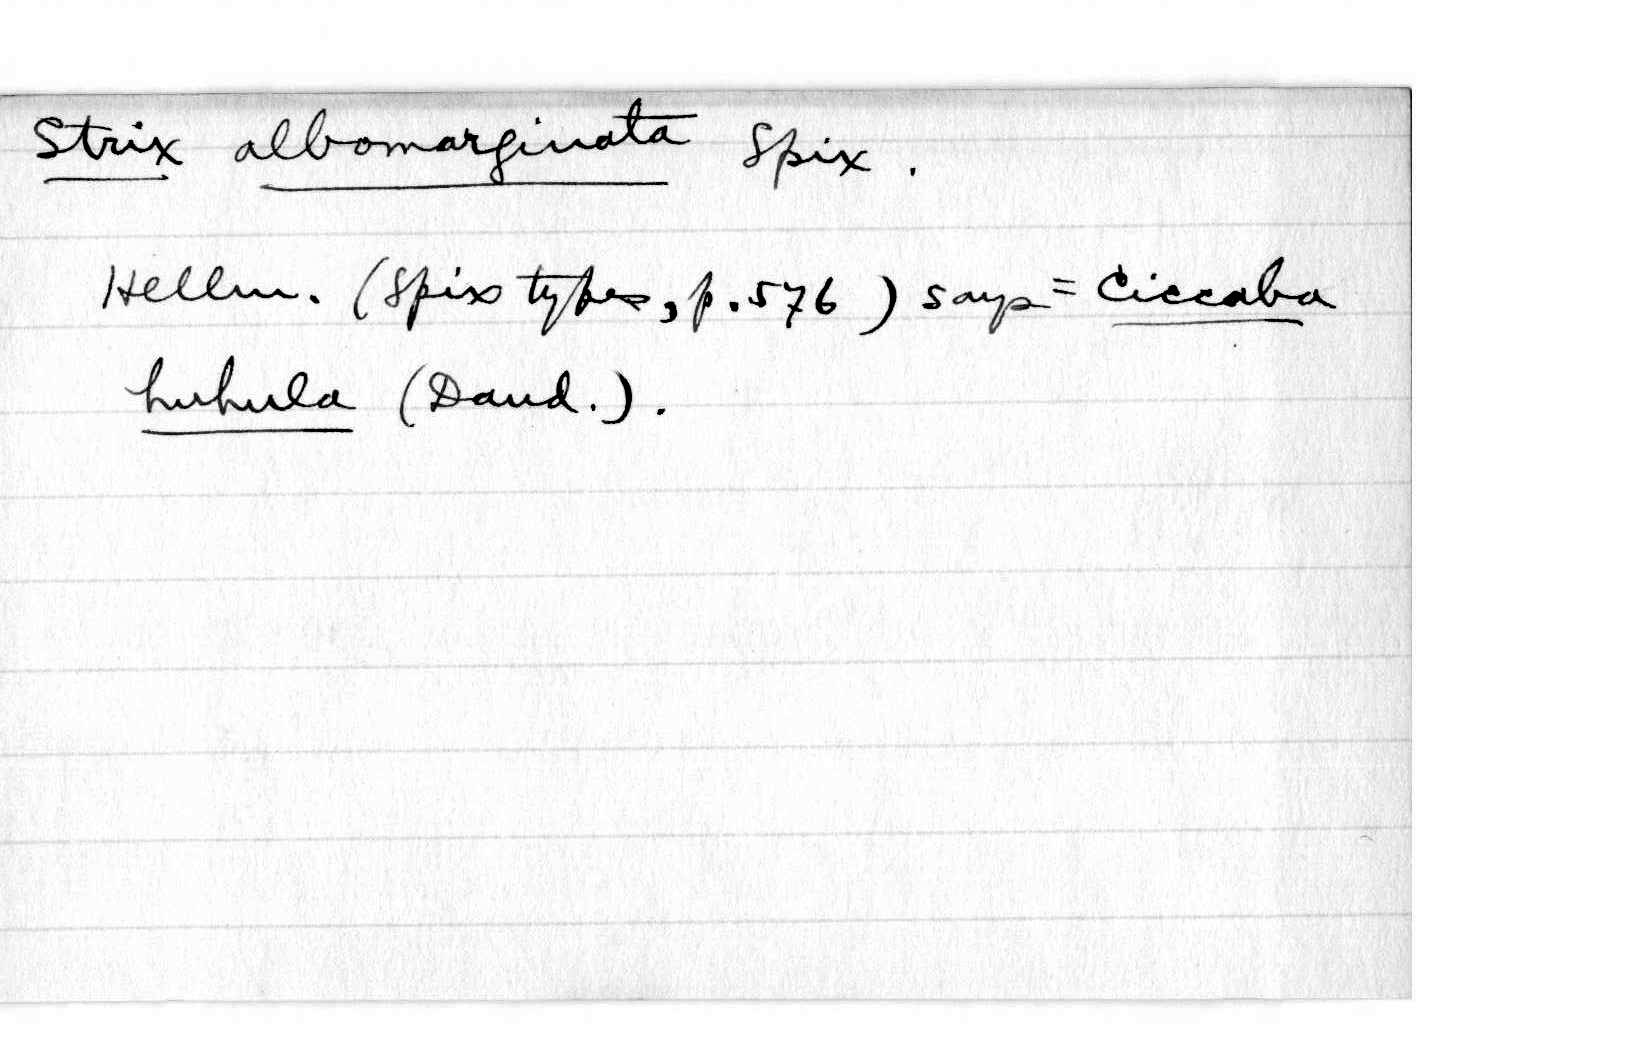 Strix albomarginata Spix.
Hellm. (Spix types, p. 576) says = Ciccaba
huhula (Daud.).